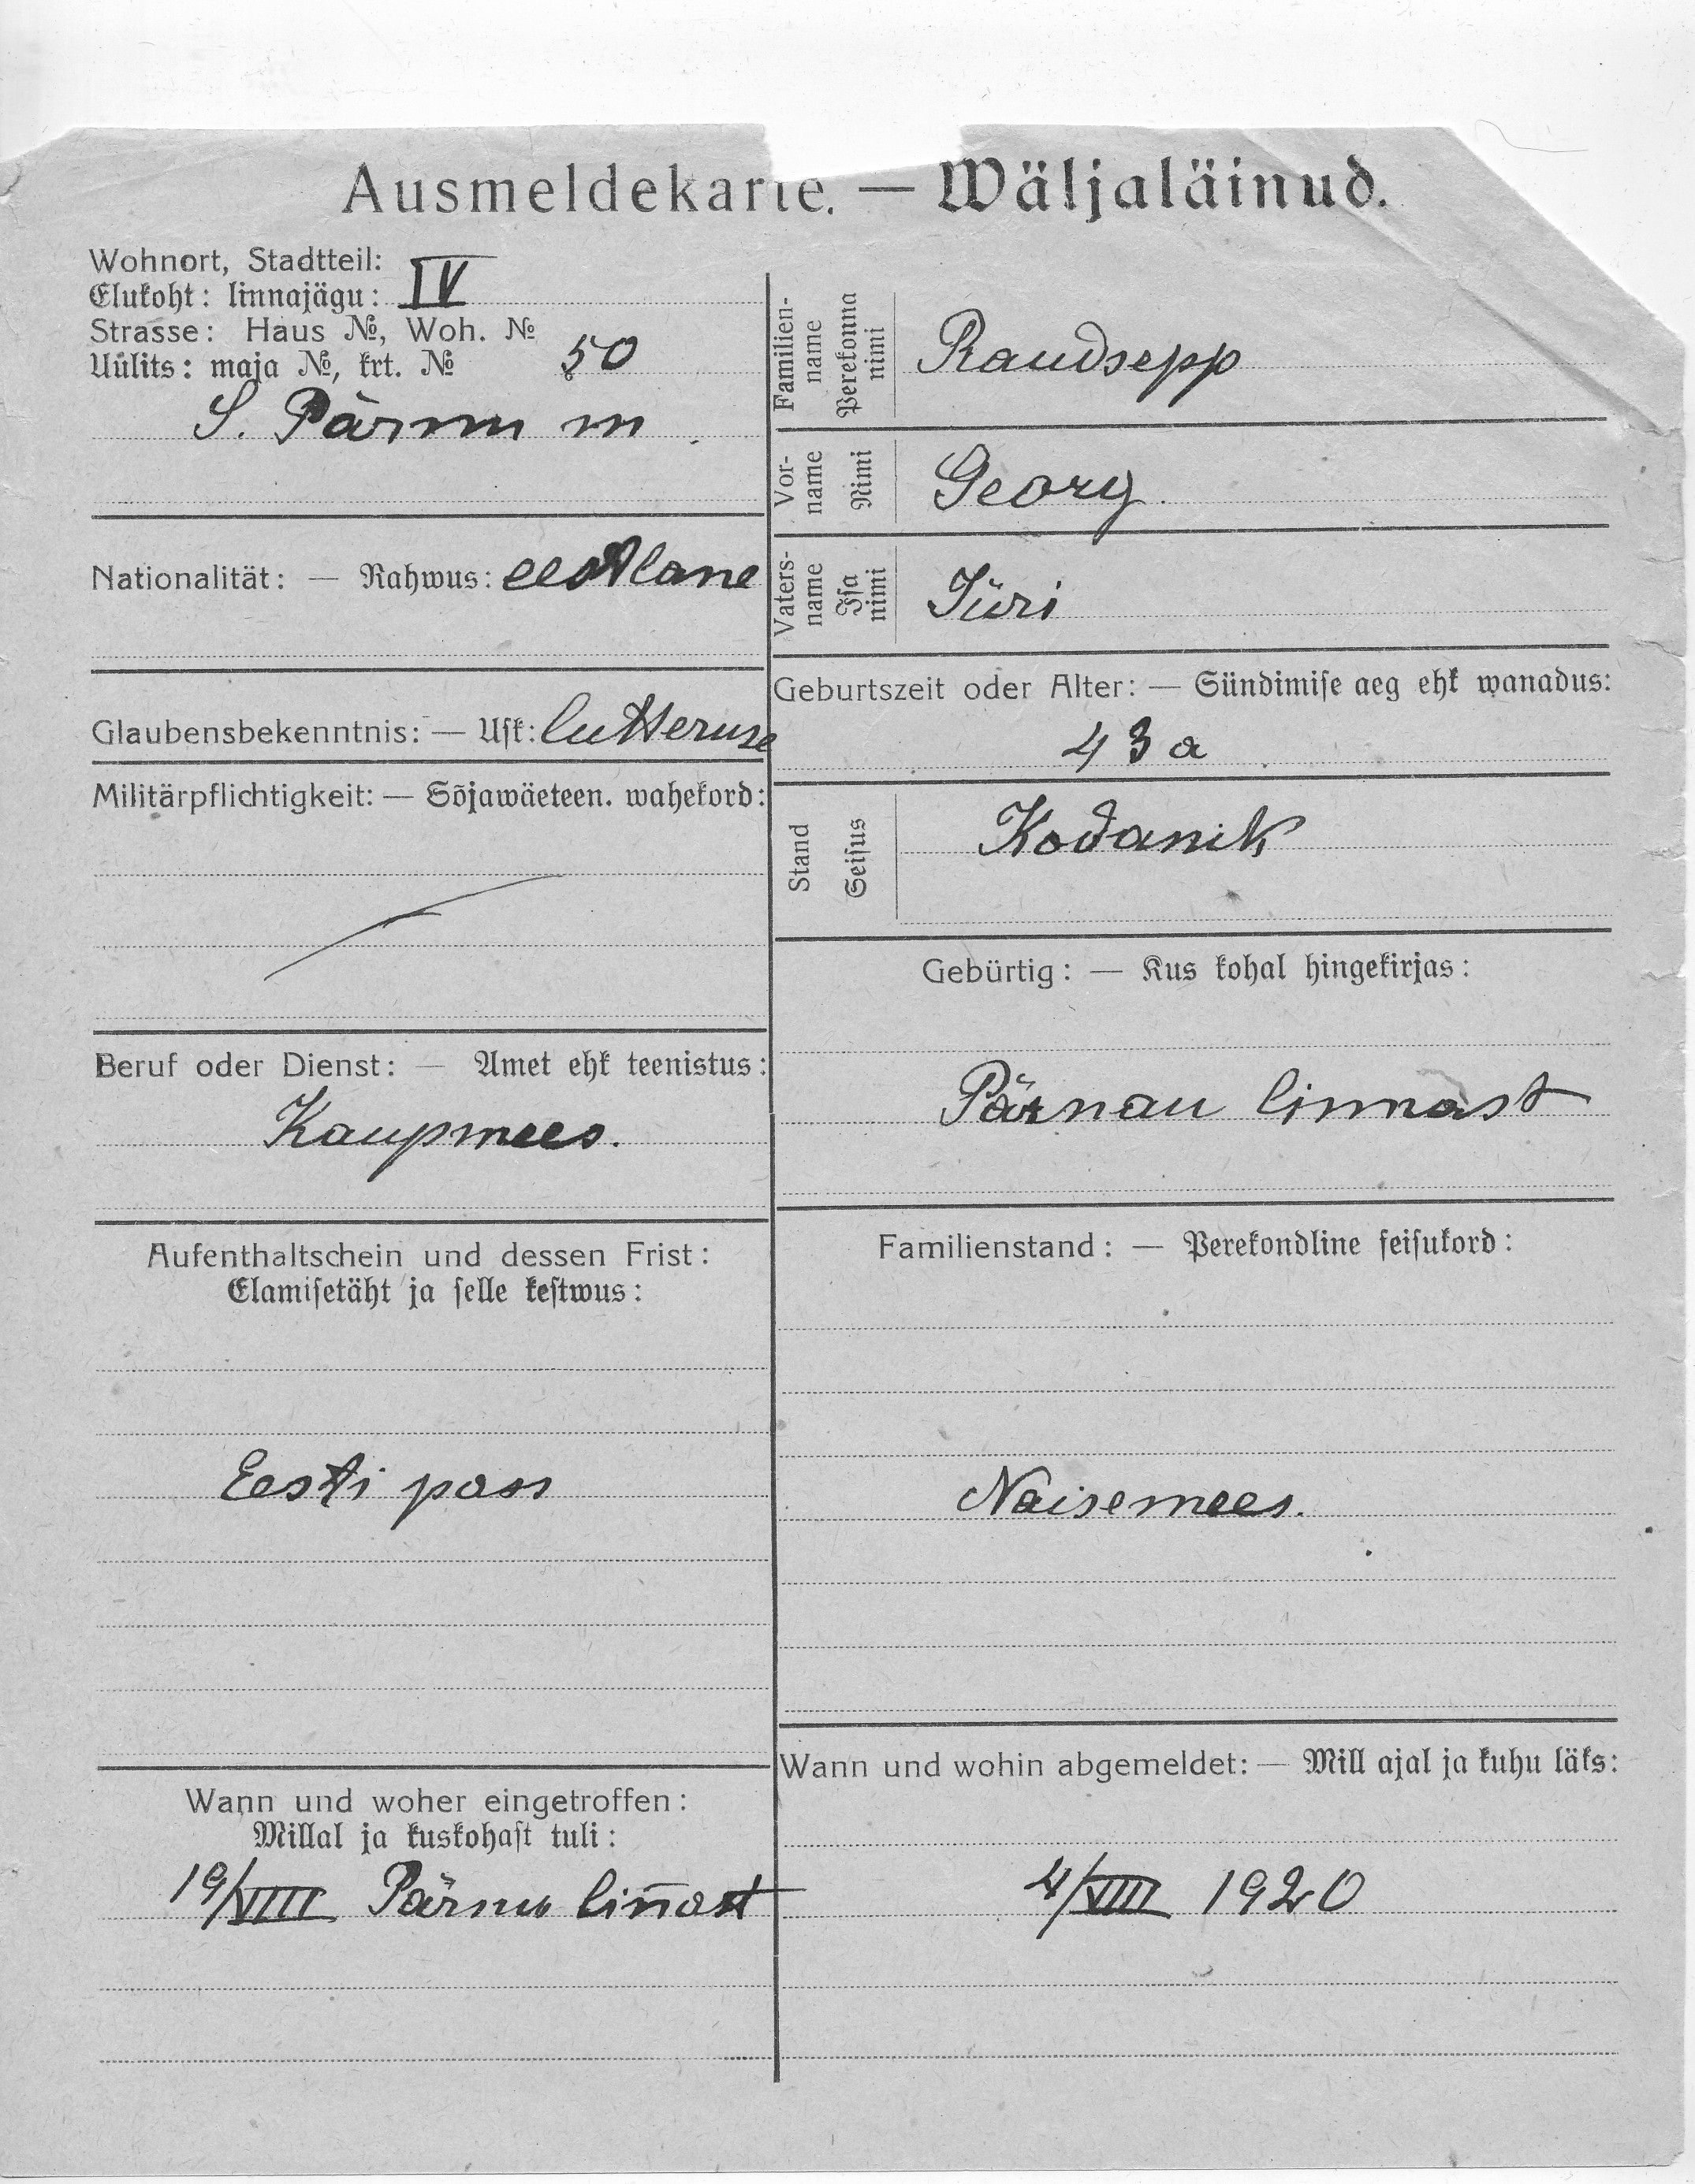 Ausmeldekarte. — Wäljaläinud.
Wohnort, Stadtteil:
Elukoht: linnajägu: IV
Strasse: Haus №, Woh. №
Uulits: maja №, krt. № 50
S. Pärnu m
Nationalität: — Rahwus: eestlane
Glaubensbekenntnis: — Uſk: lutteruse
Militärpflichtigkeit: — Sõjawäeteen. wahekord:
Beruf oder Dienst: — Amet ehk teenistus:
Kaupmees.
Aufenthaltschein und dessen Frist:
Elamiſetäht ja ſelle keſtwus:
Eesti pass
Wann und woher eingetroffen:
Millal ja kuskohaſt tuli:
19/VIII Pärnu lin̄ast
Familien-
name
Perekonna
nimi
Raudsepp
Vor-
name
Nimi
Georg.
Vaters-
name
Iſa
nimi
Jüri
Geburtszeit oder Alter: — Sündimiſe aeg ehk wanadus:
43 a
Stand
Seiſus
Kodanik
Gebürtig: — Kus kohal hingekirjas:
Pärnau linnast
Familienstand: — Perekondline ſeiſukord:
Naisemees.
Wann und wohin abgemeldet: — Mill ajal ja kuhu läks:
4/VIII 1920